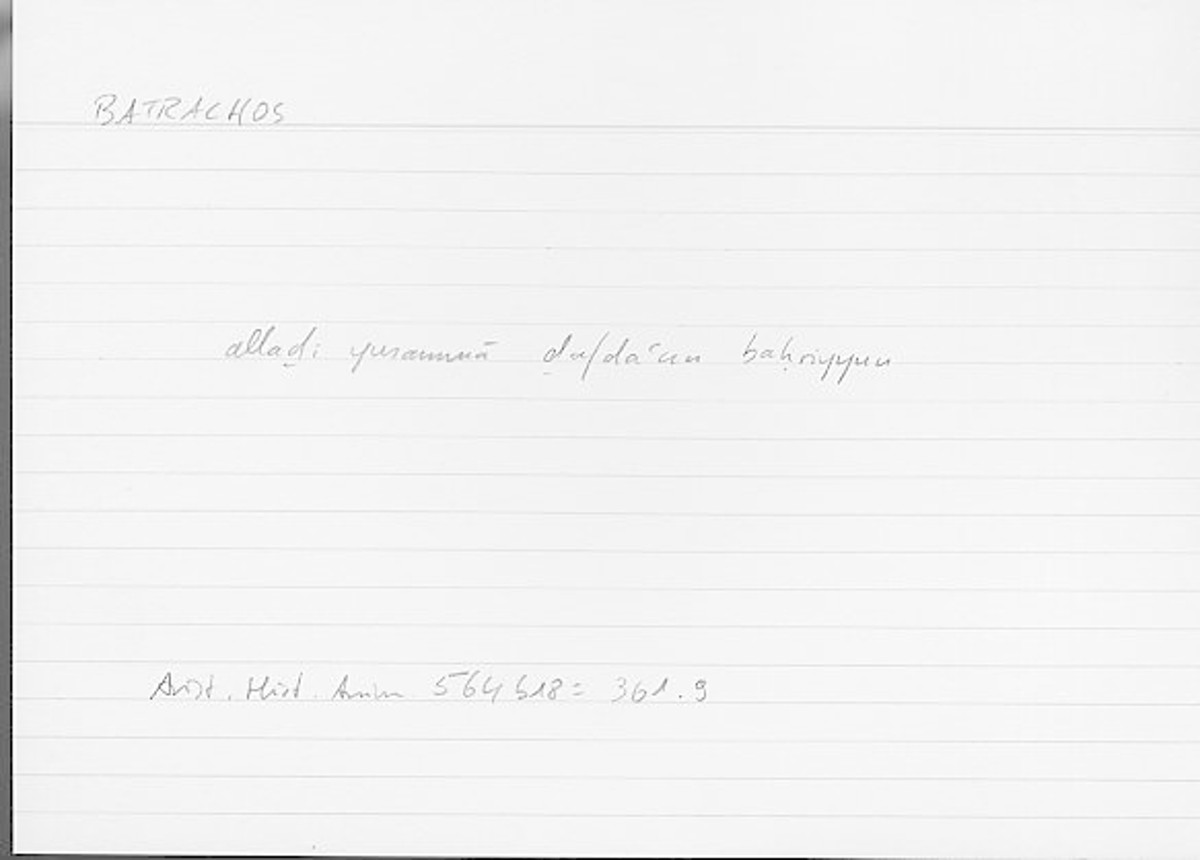 BATRACHOS
allaḏi yusammā ḍafdaʿun baḥriyyun
Arist. Hist. Anim 564 b18 = 361.9